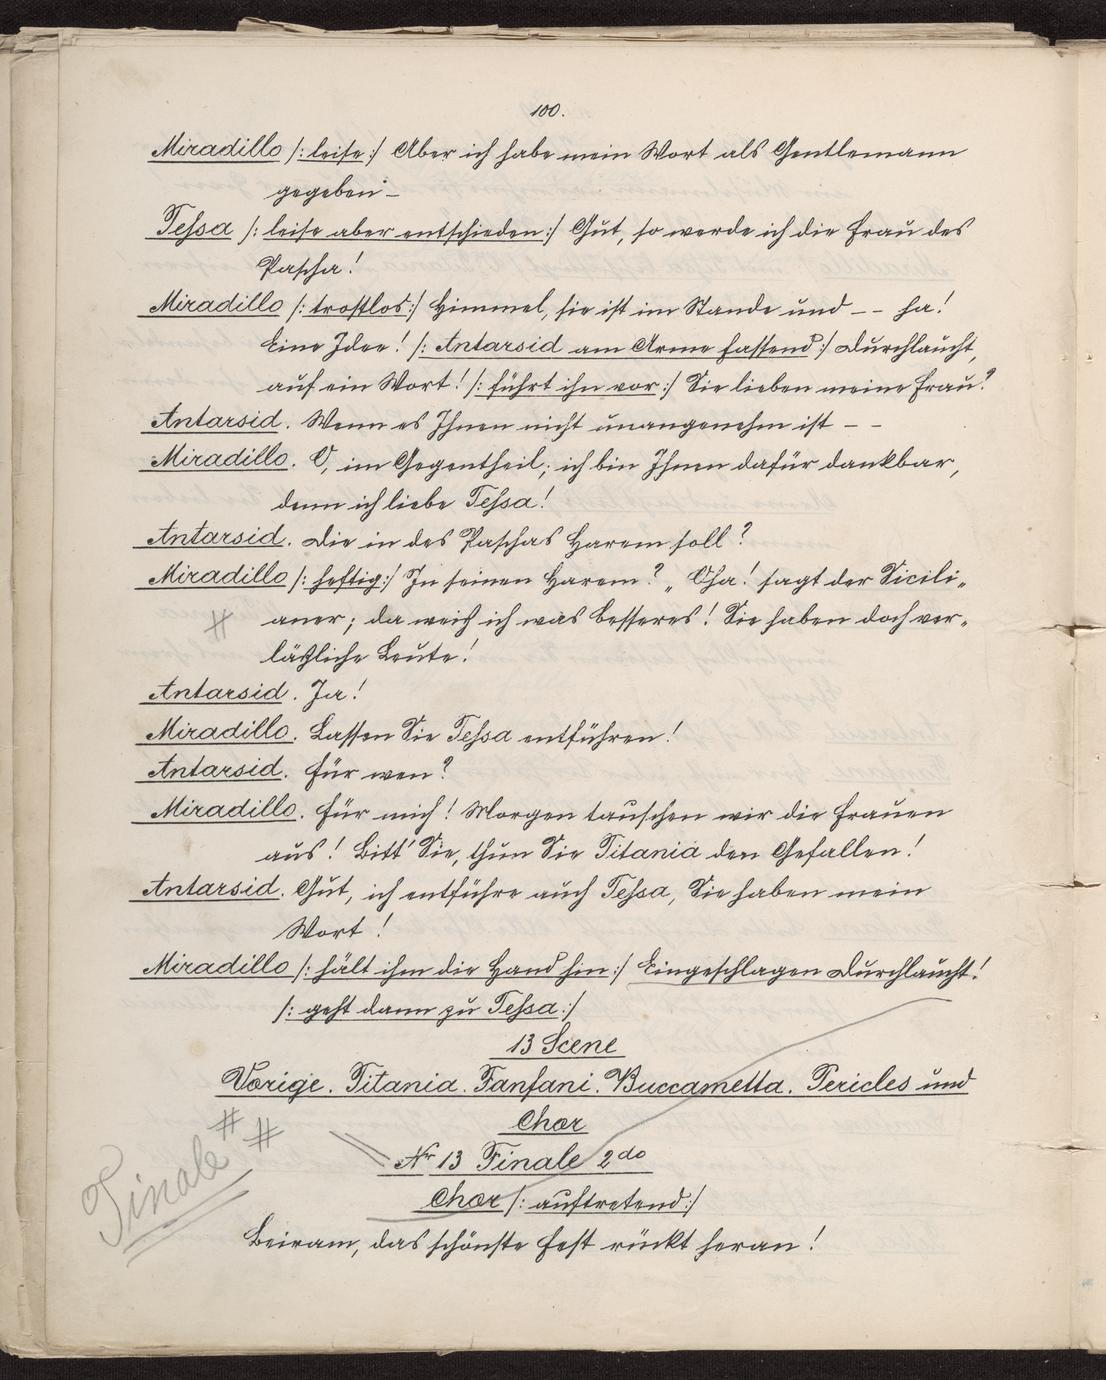 100.
Miradillo /: leise :/ Aber ich habe mein Wort als Gentlemann
gegeben –
Tessa /: leise aber entschieden :/ Gut, so werde ich die Frau des
Pascha!
Miradillo /: trostlos :/ Himmel, sie ist im Stande und – – ha!
Eine Idee! /: Antarsid am Arme fassend :/ Durchlaucht,
auf ein Wort! /: führt ihn vor :/ Sie lieben meine Frau?
Antarsid. Wenn es Ihnen nicht unangenehm ist – –
Miradillo. O, im Gegentheil; ich bin Ihnen dafür dankbar,
denn ich liebe Tessa!
Antarsid. Die in des Paschas Harem soll?
Miradillo /: heftig :/ In seinen Harem? „Oha! sagt der Sicili„
# aner; da weiß ich was besseres! Sie haben doch ver„
läßliche Leute!
Antarsid. Ja!
Miradillo. Lassen Sie Tessa entführen!
Antarsid. Für wen?
Miradillo. Für mich! Morgen tauschen wir die Frauen
aus! Bitt' Sie, thun Sie Titania den Gefallen!
Antarsid. Gut, ich entführe auch Tessa, Sie haben mein
Wort!
Miradillo /: hält ihm die Hand hin :/ Eingeschlagen Durchlaucht!
/: geht dann zu Tessa :/
13 Scene
Vorige. Titania. Fanfani. Buccametta. Pericles und
Chor
Finale # #
Nr 13 Finale 2do
Chor /: auftretend :/
Beiram, das schönste Fest rückt heran!